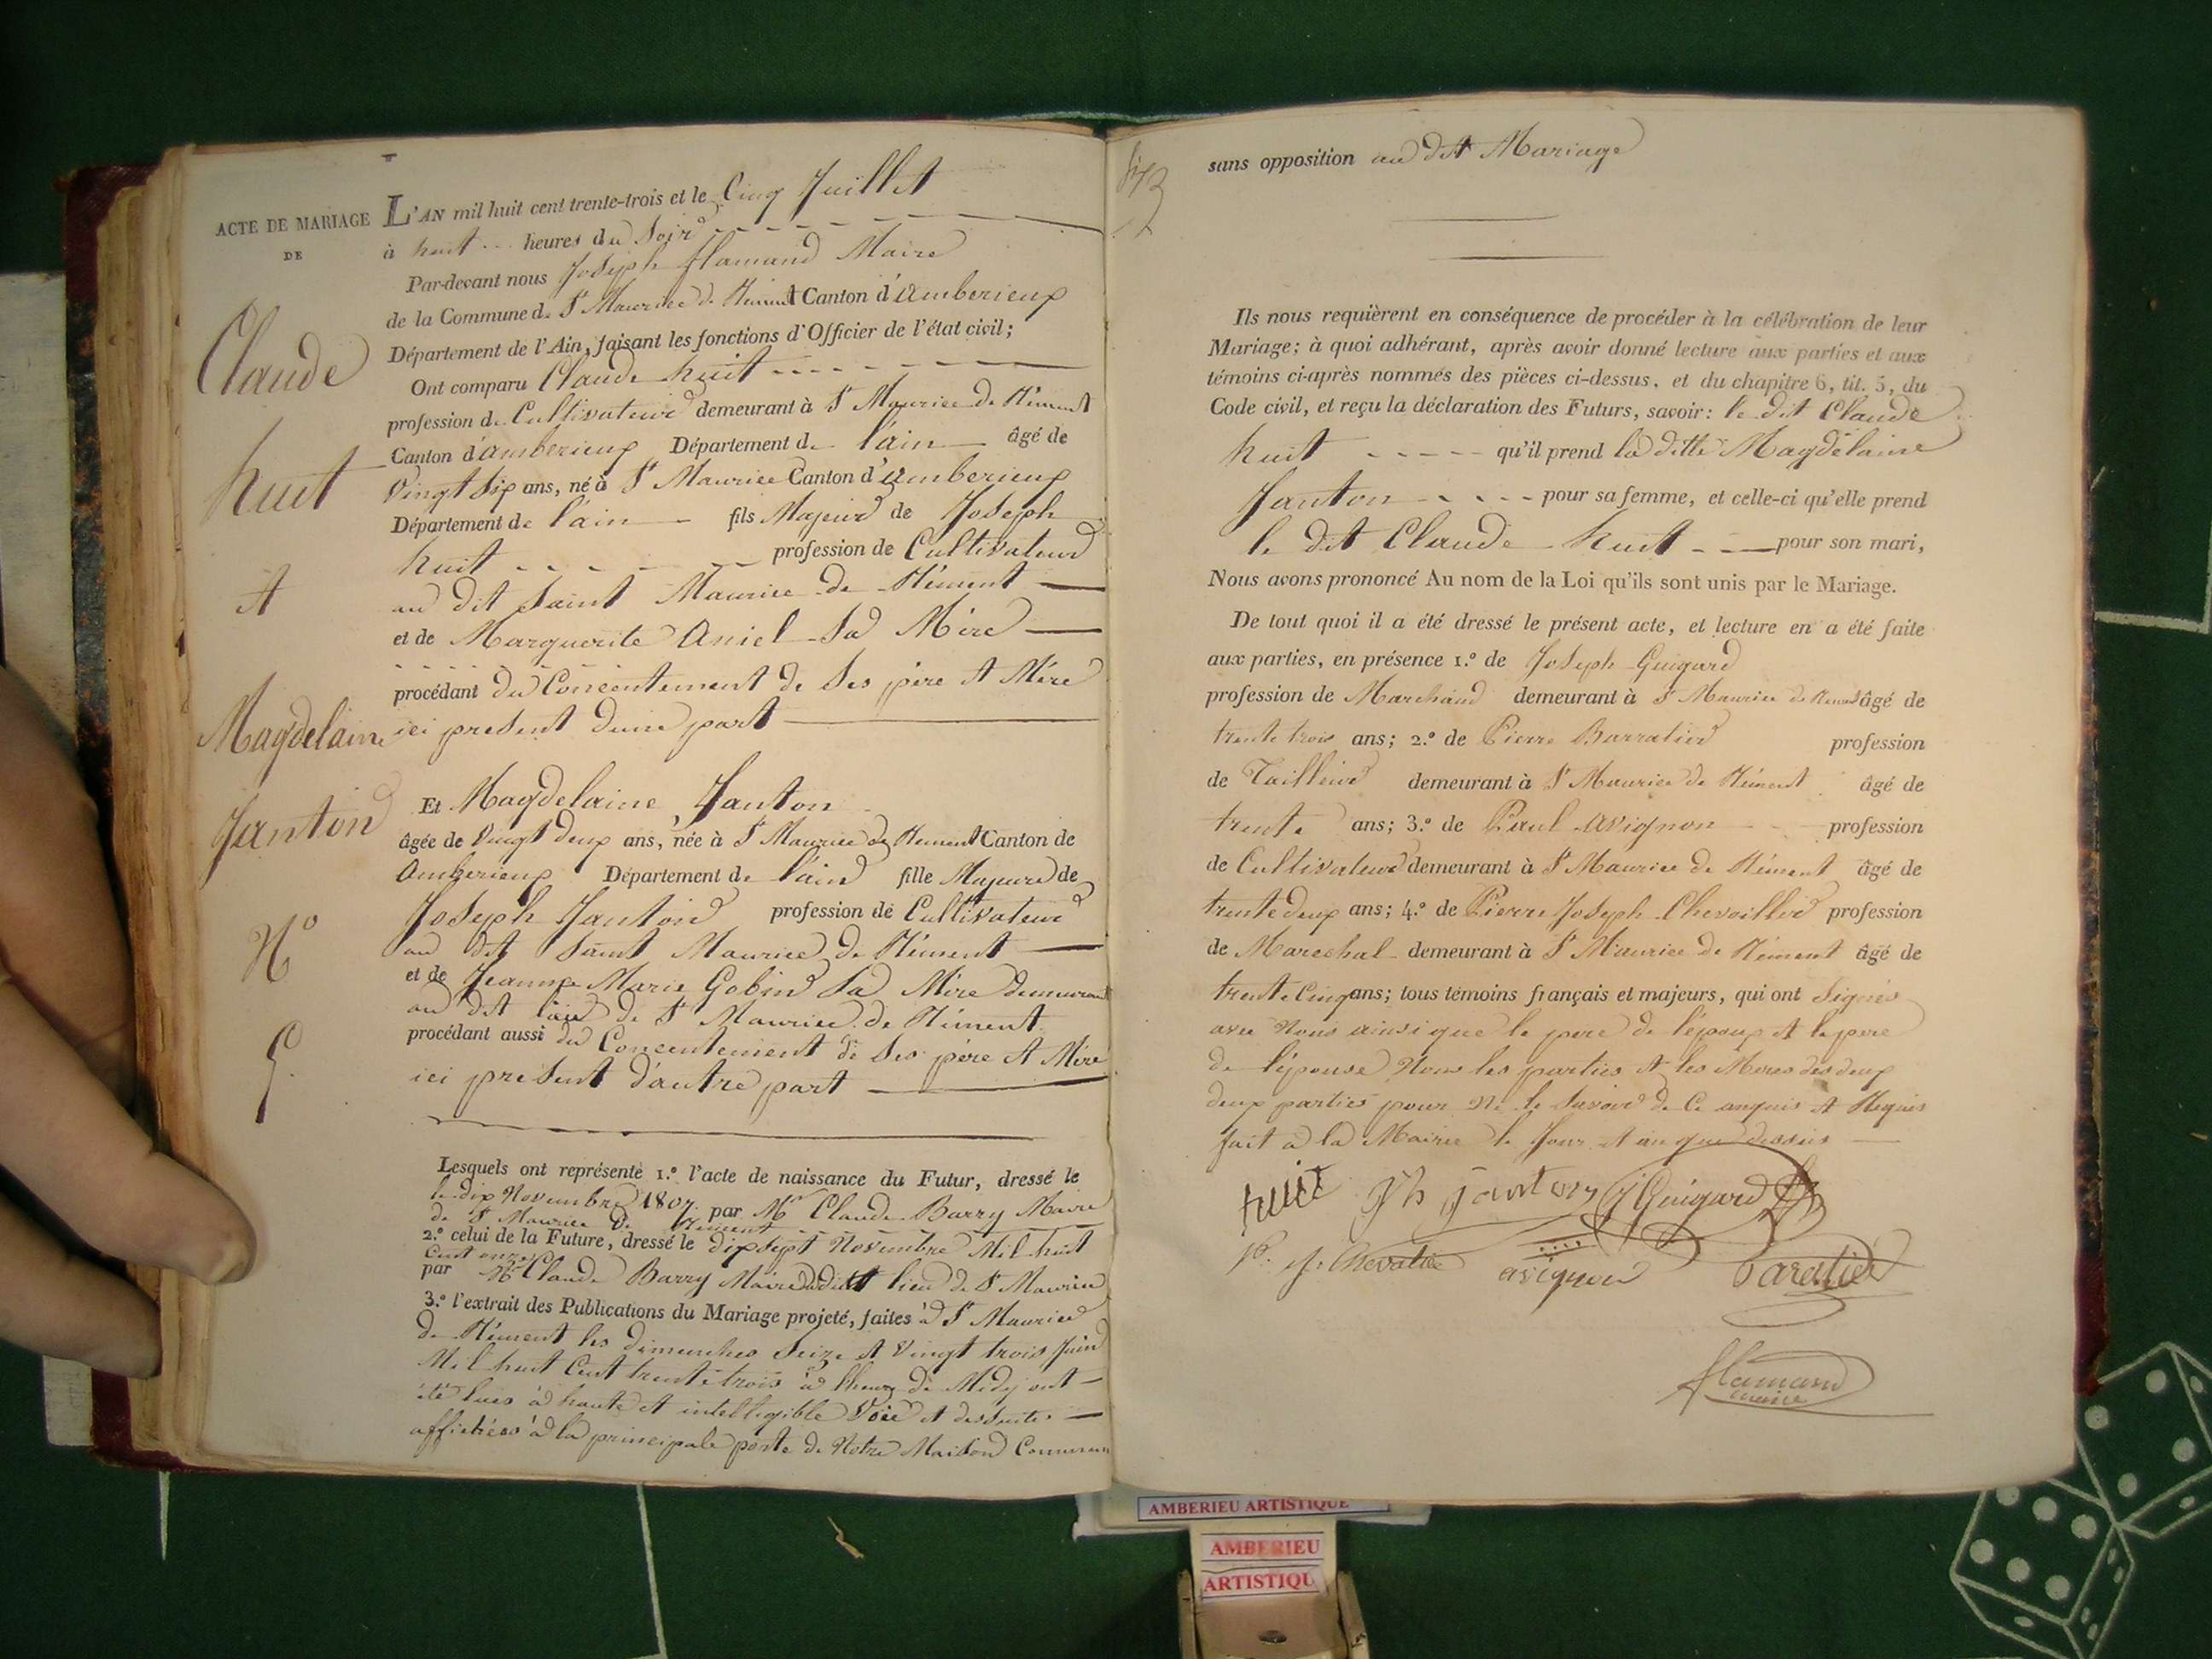 ACTE DE MARIAGE
DE
Claude
huit
et
Magdelaine
Janton
N.º
5.
L'AN mil huit cent trente-trois et le Cinq Juillet
à huit heures du Soir
Par-devant nous Joseph flamand Maire
de la Commune de St Maurice de Rément Canton d'amberieux
Département de l'Ain, faisant les fonctions d'Officier de l'état civil;
Ont comparu Claude huit
profession de Cultivateur demeurant à St Maurice de Rément
Canton d'amberieux Département de l'ain âgé de
Vingt Six ans, né à St Maurice Canton d'amberieux
Département de l'ain fils Majeur de Joseph
huit profession de Cultivateur
au dit Saint Maurice de Rément
et de Marguerite Aniel Sa Mère
procédant du Concentement de Ses père et Mère
ici présent d'une part
Et Magdelaine Janton
âgée de Vingt deux ans, née à St Maurice de Rement Canton de
Amberieux Département de l'ain fille Majeure de
Joseph Janton profession de Cultivateur
au dit Saint Maurice de Rément
et de Jeanne Marie Gobin Sa Mère demeurant
au dit lieu de St Maurice de Rément
procédant aussi du Concentement de Ses père et Mère
ici présent d'autre part
Lesquels ont représenté 1.º l'acte de naissance du Futur, dressé le
le dix Novembre 1807 par Mr Claude Barry Maire
de St Maurice de Rement
2.º celui de la Future, dressé le dix Sept Novembre Mil huit
Cent onze
par Mr Claude Barry Maire dudit lieu de St Maurice
3.º l'extrait des Publications du Mariage projeté, faites à St Maurice
de Rément les dimanches Seize et Vingt trois Juin
Mil huit Cent trente trois à l'heure de Midy ont
été lues à haute et intelligible Voix et des Suite
affichées à la principale porte de Notre Maison Commune
sans opposition au dit Mariage
Ils nous requièrent en conséquence de procéder à la célébration de leur
Mariage; à quoi adhérant, après avoir donné lecture aux parties et aux
témoins ci-après nommés des pièces ci-dessus, et du chapitre 6, tit. 5, du
Code civil, et reçu la déclaration des Futurs, savoir: le dit Claude
huit qu'il prend la ditte Magdelaine
Janton pour sa femme, et celle-ci qu'elle prend
le dit Claude huit pour son mari,
Nous avons prononcé Au nom de la Loi qu'ils sont unis par le Mariage.
De tout quoi il a été dressé le présent acte, et lecture en a été faite
aux parties, en présence 1.º de Joseph Guigard
profession de Marchand demeurant à St Maurice de Rement âgé de
trente trois ans; 2.º de Pierre Barratier profession
de Tailleur demeurant à St Maurice de Rément âgé de
trente ans; 3.º de Paul Avignon profession
de Cultivateur demeurant à St Maurice de Rément âgé de
trente deux ans; 4.º de Pierre Joseph Chevaillier profession
de Marechal demeurant à St Maurice de Rément âgé de
trente Cinq ans; tous témoins français et majeurs, qui ont Signés
avec Nous ainsi que le pere de l'époux et le pere
de l'épouse Non les parties et les Meres des deux
deux parties pour Ne le Savoir de Ce enquis et Requis
fait à la Mairie le Jour et an que dessus
huit Jh janton J Guigard
p. j. Chevalié avignon Baratier
flamand
maire
AMBERIEU ARTISTIQUE
AMBERIEU
ARTISTIQU